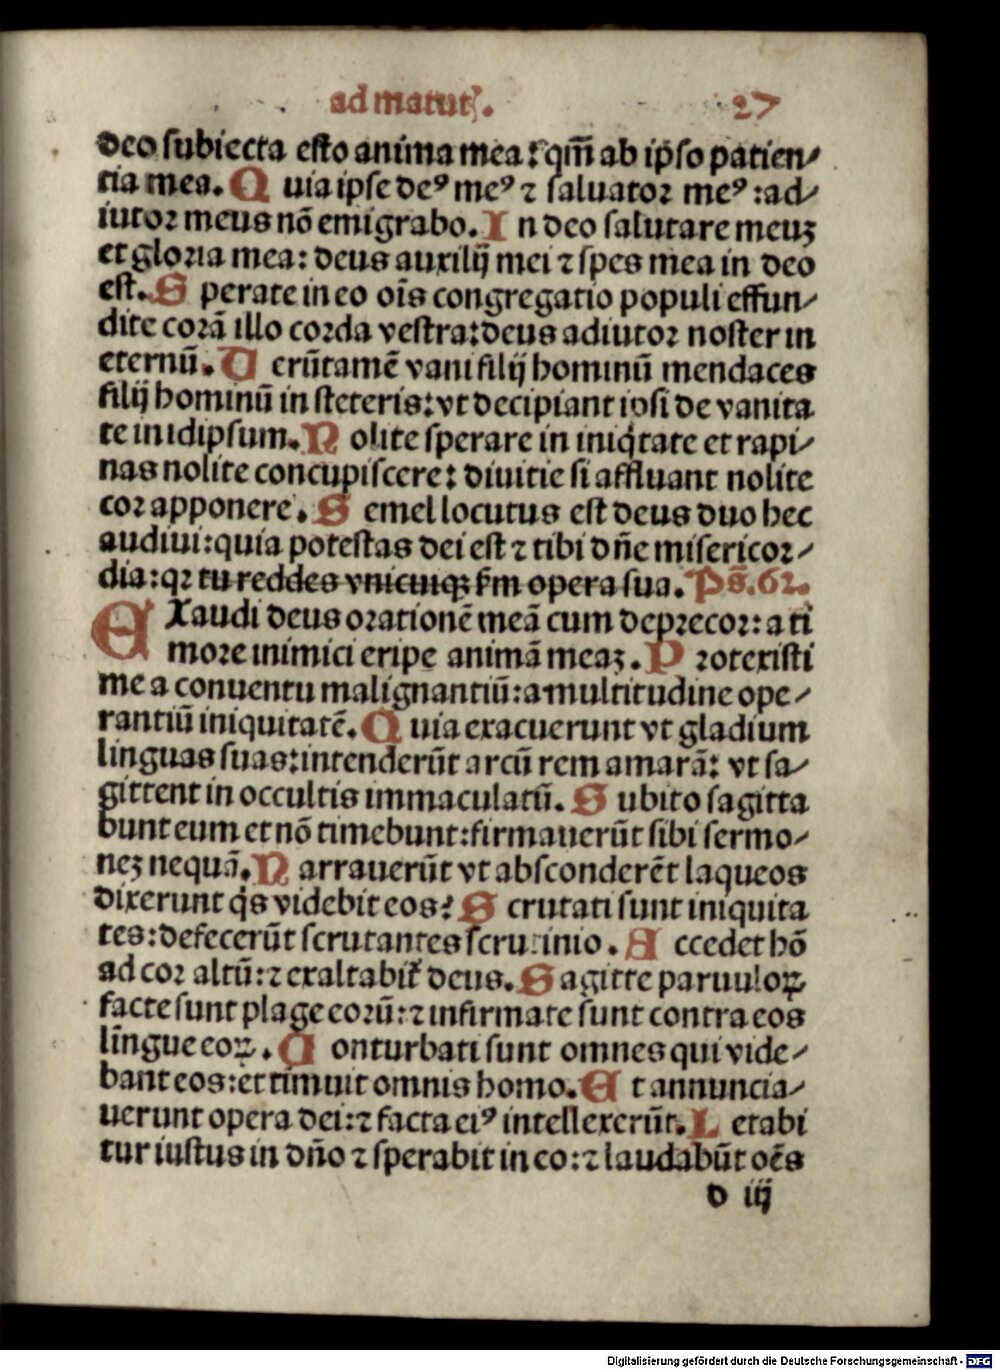 ad matut͛.
27
deo subiecta esto anima mea: qm̄ ab ipso patien/
tia mea. Quia ipse deꝰ meꝰ ⁊ saluator meꝰ: ad/
iutor meus nō emigrabo. In deo salutare meuꝫ
et gloria mea: deus auxilij mei ⁊ spes mea in deo
est. Sperate in eo oīs congregatio populi effun/
dite corā illo corda vestra: deus adiutor noster in
eternū. Uerūtamē vani filij hominū mendaces
filij hominū in steteris: vt decipiant ipsi de vanita
te in idipsum. Nolite sperare in iniq̇tate et rapi/
nas nolite concupiscere: diuitie si affluant nolite
cor apponere. Semel locutus est deus duo hec
audiui: quia potestas dei est ⁊ tibi dn̄e misericor/
dia: qꝛ tu reddes vnicuiqꝫ ẜm opera sua. Ps̄. 62.
EXaudi deus orationē meā cum deprecor: a ti
more inimici eripe animā meaꝫ. Protexisti
me a conuentu malignantiū: a multitudine ope/
rantiū iniquitatē. Quia exacuerunt vt gladium
linguas suas: intenderūt arcū rem amarā: vt sa/
gittent in occultis immaculatū. Subito sagitta
bunt eum et nō timebunt: firmauerūt sibi sermo/
neꝫ nequā. Narrauerūt vt absconderēt laqueos
dixerunt q̇s videbit eos? Scrutati sunt iniquita
tes: defecerūt scrutantes scrutinio. Accedet hō
ad cor altū: ⁊ exaltabit͛ deus. Sagitte paruuloꝝ
facte sunt plage eorū: ⁊ infirmate sunt contra eos
lingue eoꝝ. Conturbati sunt omnes qui vide/
bant eos: et timuit omnis homo. Et annuncia/
uerunt opera dei: ⁊ facta eiꝰ intellexerūt. Letabi
tur iustus in dn̄o ⁊ sperabit in eo: ⁊ laudabūt oēs
d iij
Digitalisierung gefördert durch die Deutsche Forschungsgemeinschaft - DFG